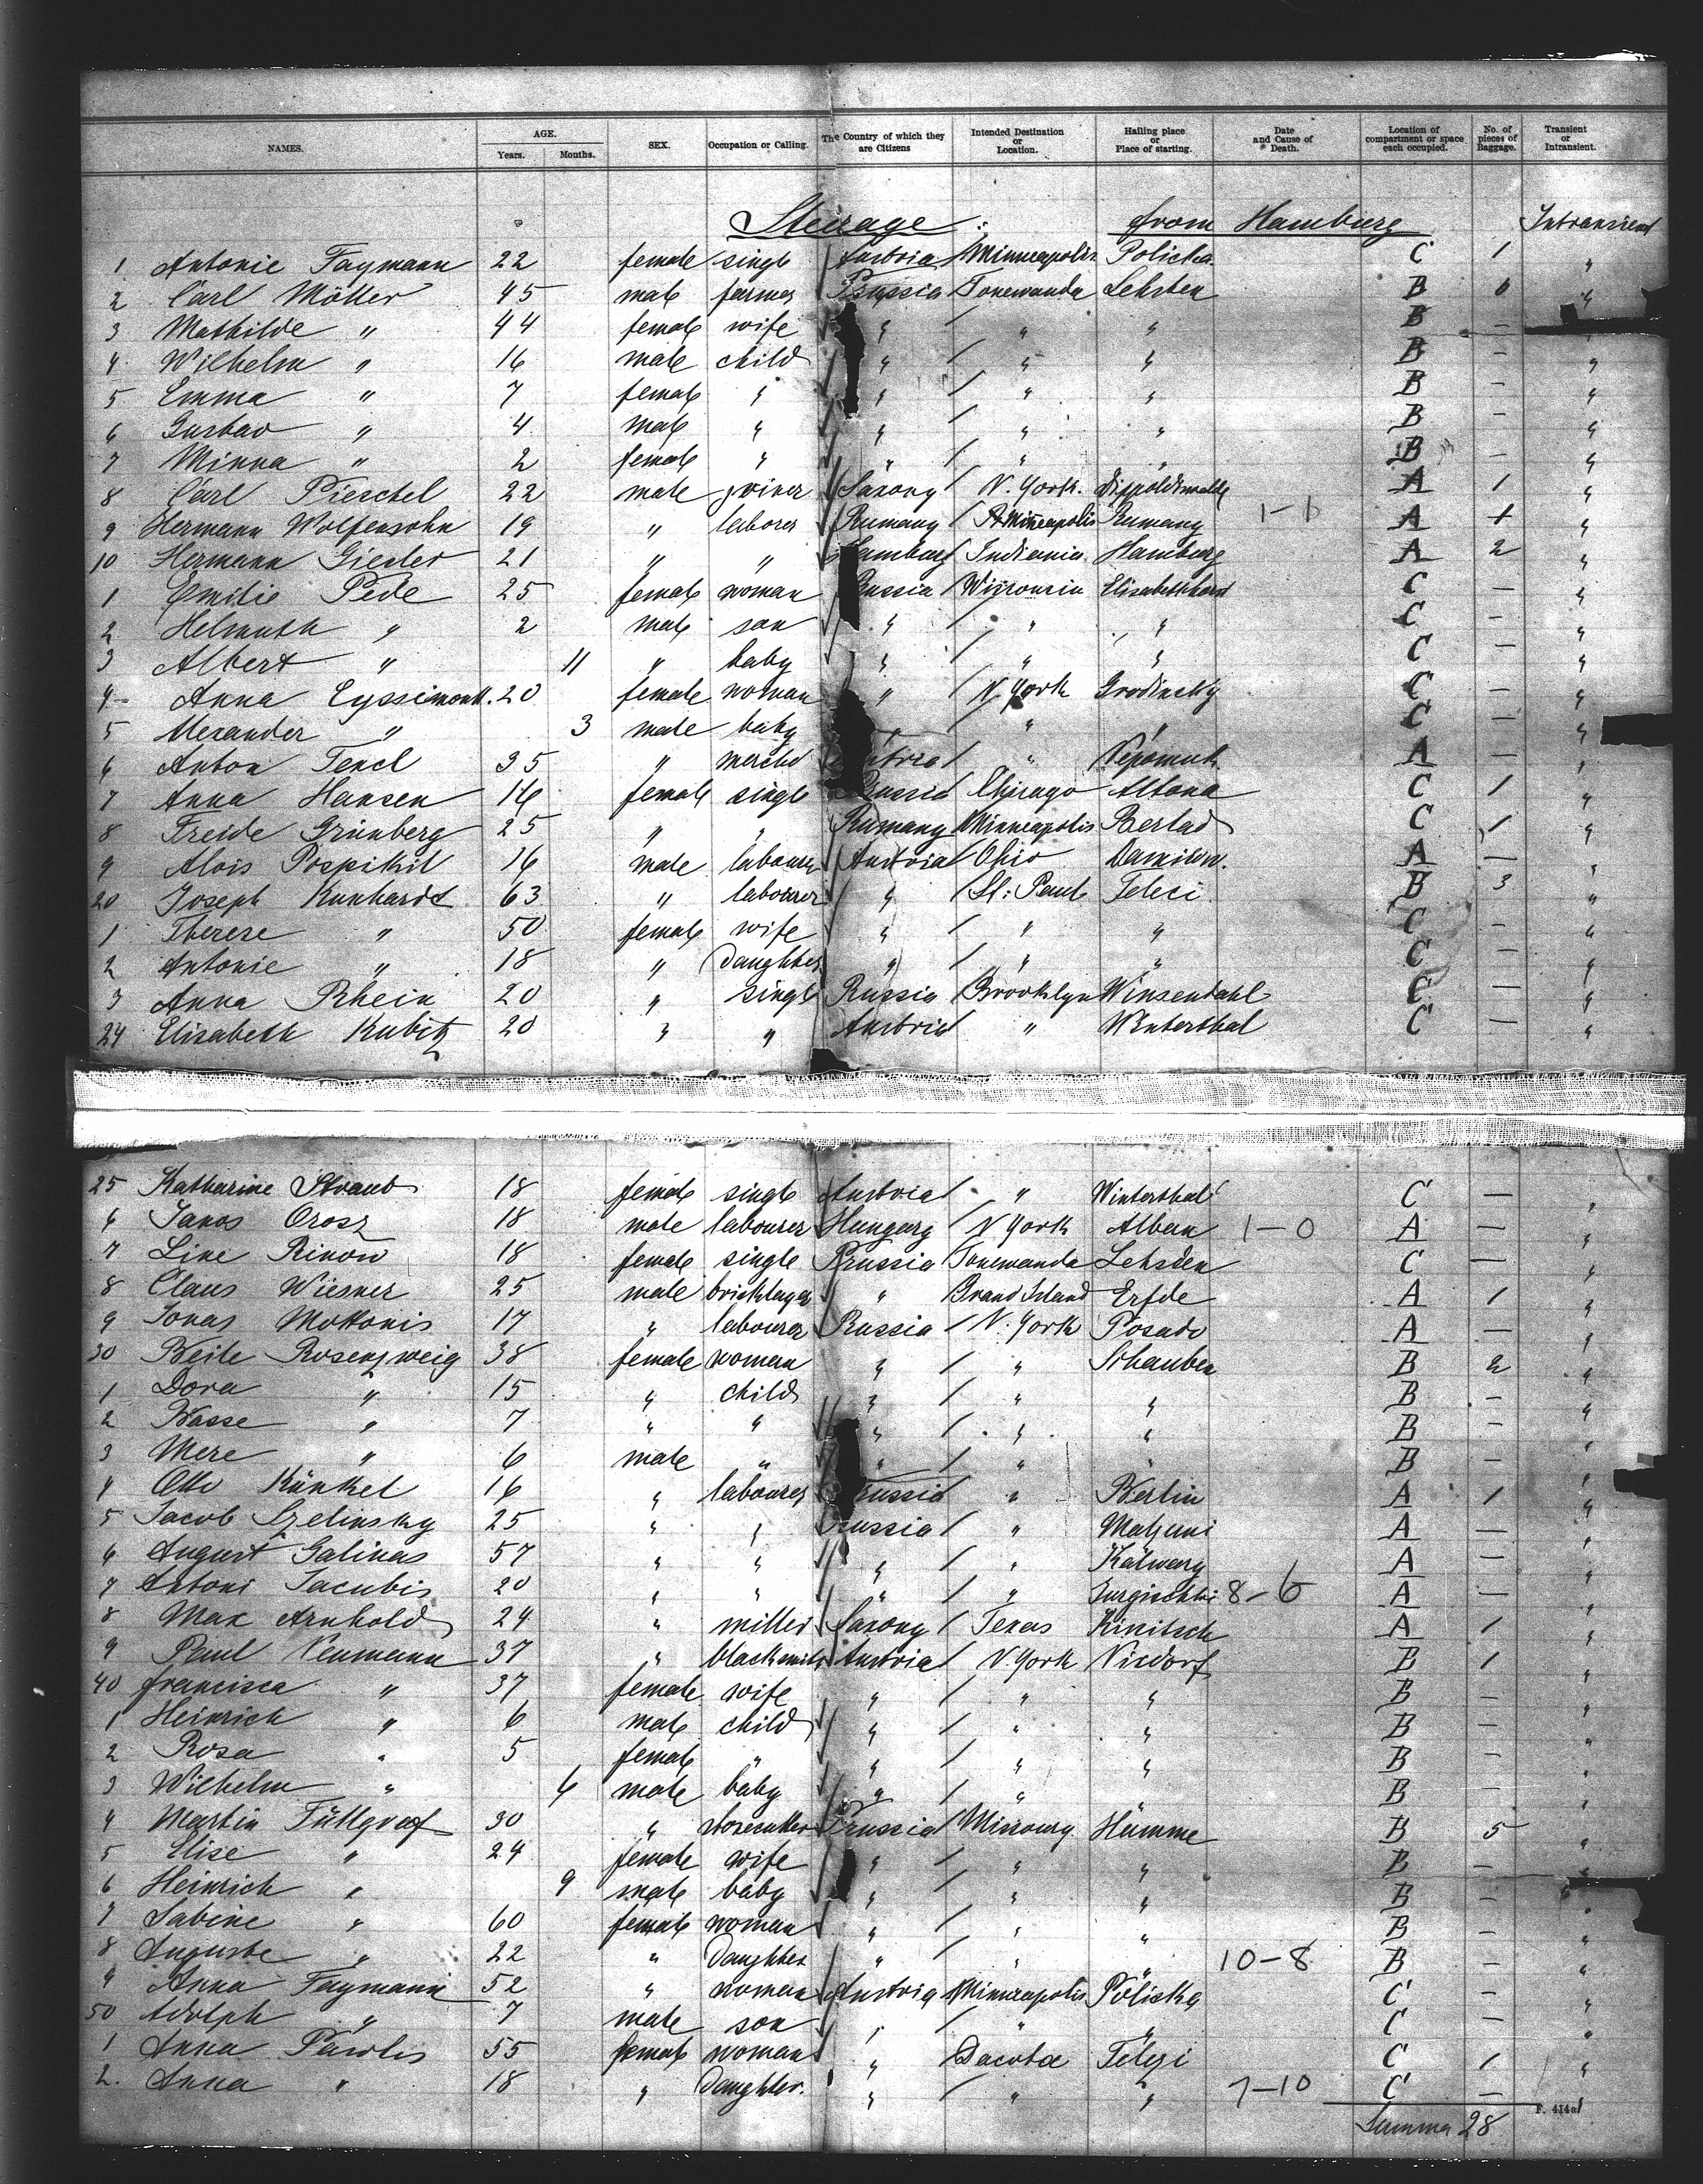 NAMES. AGE. Years. Months. SEX. Occupation or Calling. The Country of which they are Citizens Intended Destination or Location. Hailing place or Place of starting. Date and Cause of Death. Location of compartment or space each occupied. No. of pieces of Baggage. Transient or Intransient.
Steerage. from Hamburg Intransient
1 Antonie Faymann 22 female single Austria Minneapolis Policka C 1 "
2 Carl Möller 45 male farmer Prussia Tonewanda Lehsten B "
3 Mathilde " 44 female wife " " " B — "
4 Wilhelm " 16 male child " " " B — "
5 Emma " 7 female " " " " B — "
6 Gustav " 4 male " " " " B — "
7 Minna " 2 female " " " " B — "
8 Carl Pieschel 22 male joiner Saxony N. York. Dippoldiswalde A 1 "
9 Hermann Wolfensohn 19 " laborer Rumany Minneapolis Rumany A 1 "
10 Hermann Giesler 21 " " Hamburg Indiania Hamburg A 2 "
1 Emilie Pede 25 female woman Russia Wisconsin C — "
2 Helmuth " 2 male son " " " C — "
3 Albert " 11 " baby " " " C — "
4 Anna 20 female woman " N. York C — "
5 Alexander " 3 male baby " " " C — "
6 Anton Tencl 35 " Austria " Nepomuk A — "
7 Anna Hansen 16 female single Prussia Chicago Altona C 1 "
8 Freide Grünberg 25 " " Rumany Minneapolis Berlad C 1 "
9 Alois Pospikil 16 male labourer Austria Ohio A — "
20 Joseph Kunhardt 63 " labourer " St. Paul Teleci B 3 "
1 Therese " 50 female wife " " " C — "
2 Antonie " 18 " Daughter " " " C — "
3 Anna Rhein 20 " single Russia Brooklyn Winsendahl C — "
24 Elisabeth Kubitz 20 " " Austria " Winterthal C — "
25 Katharine Straub 18 female single Austria " Winterthal C — "
6 Janos Orosz 18 male labourer Hungary N York 1—0 A — "
7 Line Rinow 18 female single Prussia Tonewanda Lehsten C — "
8 Claus Wiesner 25 male bricklayer " Grand Island Erfde A 1 "
9 Jonas Mokonis 17 " labourer Russia N. York Posado A — "
30 Beile Rosenzweig 38 female woman " " B 2 "
1 Dora " 15 " child " " " B — "
2 Basse " 7 " " " " " B — "
3 Mere " 6 male " " " " B — "
4 Otto Künkel 16 " labourer Prussia " Berlin A 1 "
5 Jacob Szelinsky 25 " " Russia " A — "
6 August Galinas 57 " " " " Kalwary A — "
7 Antoni Jacubis 20 " " " " 8—6 A — "
8 Max Arnhold 24 " miller Saxony Texas A 1 "
9 Paul Neumann 37 " blacksmith Austria N. York Nixdorf B 1 "
40 Francisca " 37 female wife " " " B — "
1 Heinrich " 6 male child " " " B — "
2 Rosa " 5 female " " " " B — "
3 Wilhelm " 6 male baby " " " B — "
4 Martin Füllgraf 30 " stonecutter Prussia Missoury Hümme B 5 "
5 Elise " 24 female wife " " " B — "
6 Heinrich " 9 male baby " " " B — "
7 Sabine " 60 female woman " " " B — "
8 Auguste " 22 " Daughter " " " 10—8 B — "
9 Anna Faymann 52 " woman Austria Minneapolis Policka C — "
50 Adolph " 7 male son " " " C — "
1 Anna Pawlis 55 female woman " Dacota Telezi C 1 "
2. Anna " 18 " Daughter. " " " 7—10 C —
F. 414a
Summa 28